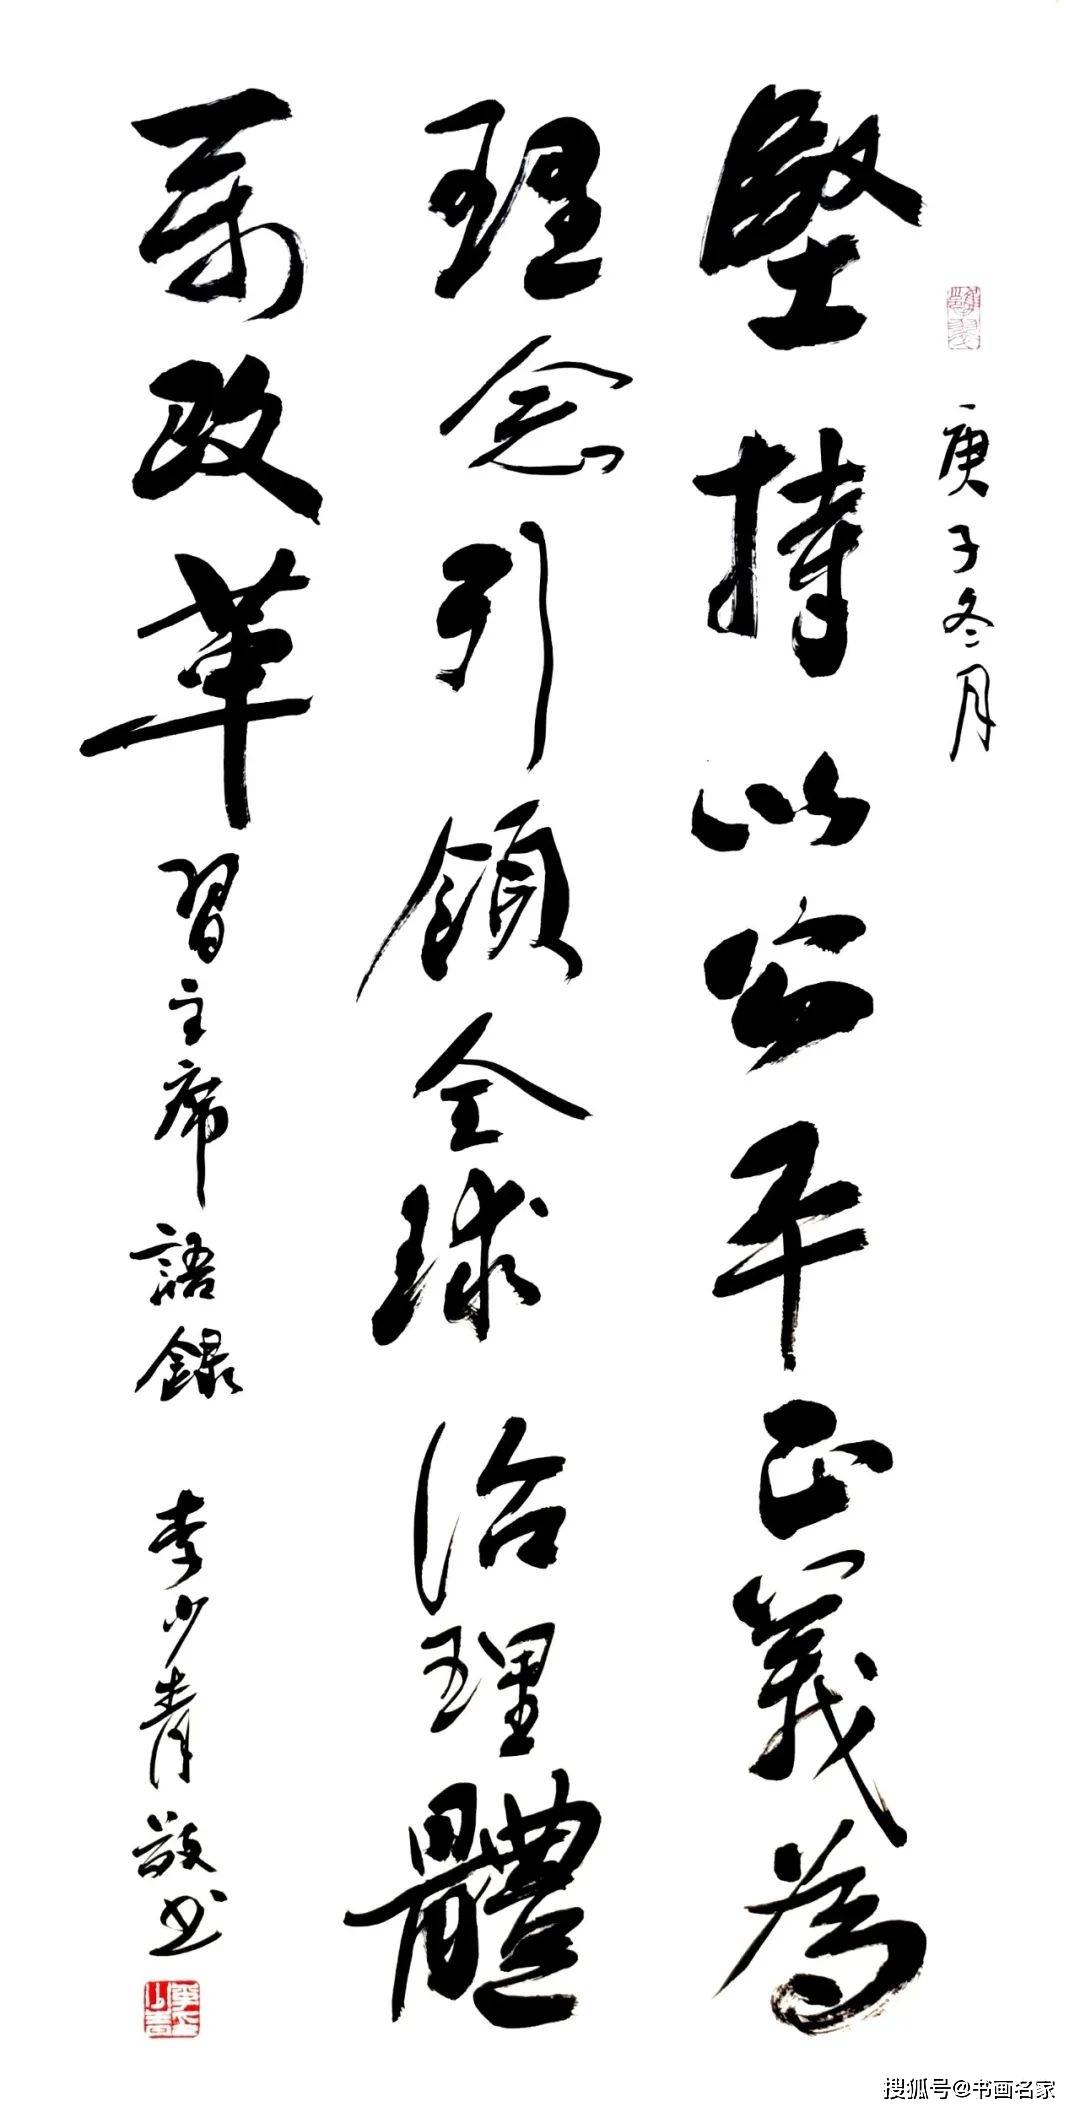 庚子冬月
堅持以公平正義為
理念引領全球治理體
系改革
習主席語録
李少青敬书
搜狐号@书画名家